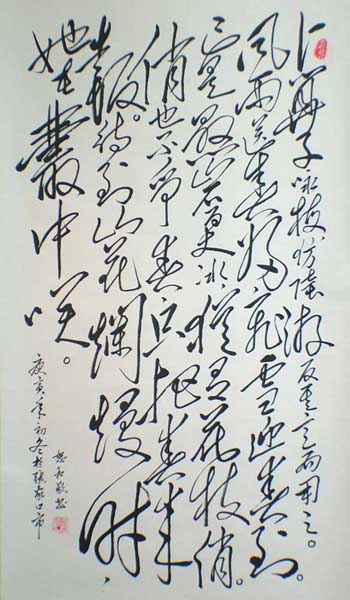 卜算子 咏梅 仿陸游反其意而用之。
风雨送春归飞雪迎春到。
已是悬崖百丈冰犹有花枝俏。
俏也不争春只把春来
报。待到山花爛漫时，
她在叢中咲。
庚寅年初冬於張家口市